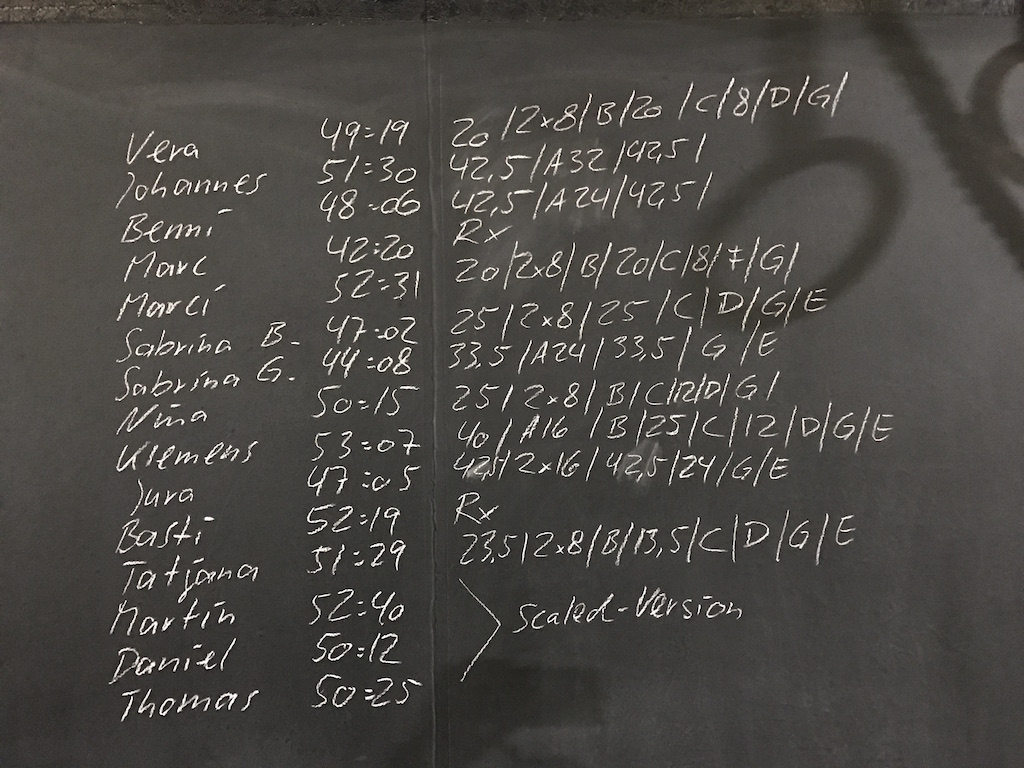 Vera 49:19 20 / 2x8 / B / 20 / C / 8 / D / G /
Johannes 51:30 42,5 / A32 / 42,5 /
Benni 48:06 42,5 / A24 / 42,5 /
Marc 42:20 Rx
Marci 52:31 20 / 2x8 / B / 20 / C / 8 / / G /
Sabrina B. 47:02 25 / 2x8 / 25 / C / D / G / E
Sabrina G. 44:08 33,5 / A24 / 33,5 / G / E
Nina 50:15 25 / 2x8 / B / C / 12 / D / G /
Klemens 53:07 40 / A16 / B / 25 / C / 12 / D / G / E
Jura 47:05 42,5 / 2x16 / 42,5 / 24 / G / E
Basti 52:19 Rx
Tatjana 51:29 23,5 / 2x8 / B / 13,5 / C / D / G / E
Martin 52:40
Daniel 50:12 Scaled-Version
Thomas 50:25